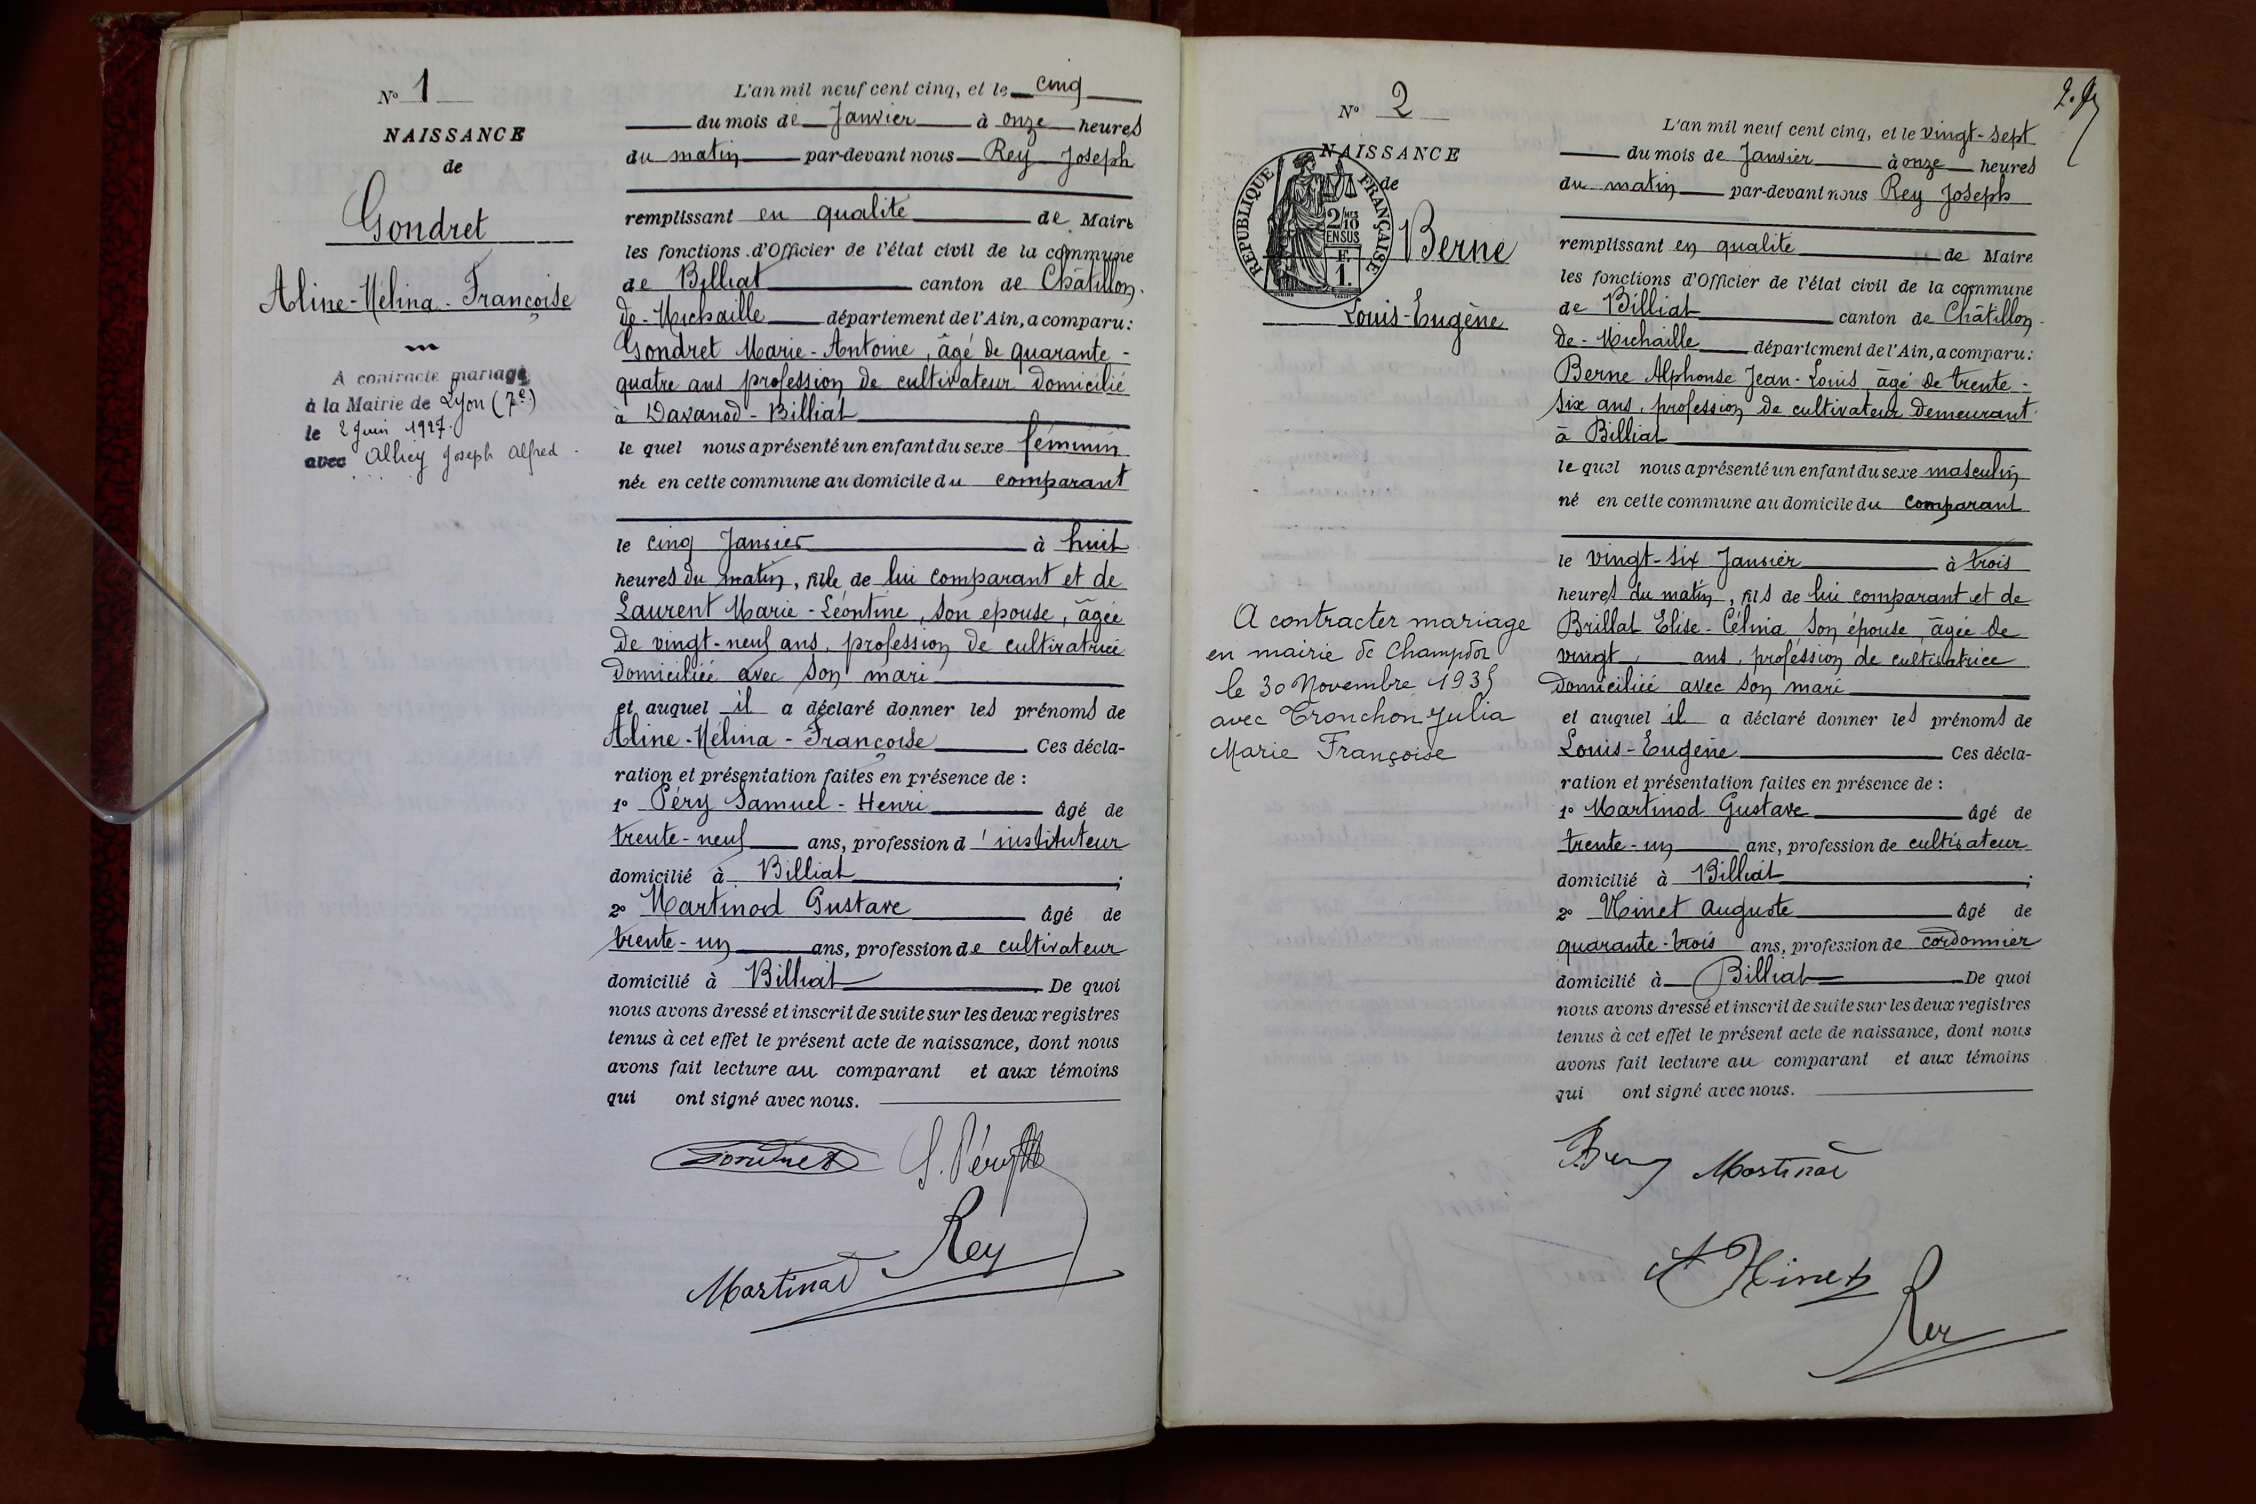 N° 1
NAISSANCE
de
Gondret
Aline-Mélina-Françoise
A contracté mariage
à la Mairie de Lyon (7e)
le 2 Juin 1927.
avec Joseph Alfred
L'an mil neuf cent cinq, et le cinq
du mois de Janvier à onze heures
du matin par-devant nous Rey Joseph
remplissant en qualité de Maire
les fonctions d'Officier de l'état civil de la commune
de Billiat canton de Châtillon-
de-Michaille département de l'Ain, a comparu:
Gondret Marie-Antoine, âgé de quarante-
quatre ans profession de cultivateur domicilié
à Davanod-Billiat
le quel nous a présenté un enfant du sexe féminin
née en cette commune au domicile du comparant
le cinq Janvier à huit
heures du matin, fille de lui comparant et de
Laurent Marie-Léontine, son épouse, âgée
de vingt-neuf ans, profession de cultivatrice
domiciliée avec son mari
et auquel il a déclaré donner les prénoms de
Aline-Mélina-Françoise Ces décla-
ration et présentation faites en présence de :
1° Péry Samuel-Henri âgé de
trente-neuf ans, profession d'instituteur
domicilié à Billiat ;
2° Martinod Gustave âgé de
trente-un ans, profession de cultivateur
domicilié à Billiat De quoi
nous avons dressé et inscrit de suite sur les deux registres
tenus à cet effet le présent acte de naissance, dont nous
avons fait lecture au comparant et aux témoins
qui ont signé avec nous.
Gondret S. Péry
Rey
Martinod
2.
N° 2
NAISSANCE
de
RÉPUBLIQUE FRANÇAISE
2/10
EN SUS
F.
1.
Berne
Louis-Eugène
A contracter mariage
en mairie de Champdor
le 30 Novembre 1935
avec Tronchon Julia
Marie Françoise
L'an mil neuf cent cinq, et le vingt-sept
du mois de Janvier à onze heures
du matin par-devant nous Rey Joseph
remplissant en qualité de Maire
les fonctions d'Officier de l'état civil de la commune
de Billiat canton de Châtillon-
de-Michaille département de l'Ain, a comparu:
Berne Alphonse Jean-Louis âgé de trente-
six ans, profession de cultivateur demeurant
à Billiat
le quel nous a présenté un enfant du sexe masculin
né en cette commune au domicile du comparant
le vingt-six Janvier à trois
heures du matin, fils de lui comparant et de
Brillat Elise-Célina son épouse, âgée de
vingt ans, profession de cultivatrice
domiciliée avec son mari
et auquel il a déclaré donner les prénoms de
Louis-Eugène Ces décla-
ration et présentation faites en présence de :
1° Martinod Gustave âgé de
trente-un ans, profession de cultivateur
domicilié à Billiat ;
2° Ninet Auguste âgé de
quarante-trois ans, profession de cordonnier
domicilié à Billiat De quoi
nous avons dressé et inscrit de suite sur les deux registres
tenus à cet effet le présent acte de naissance, dont nous
avons fait lecture au comparant et aux témoins
qui ont signé avec nous.
Martinod
A Ninet
Rey